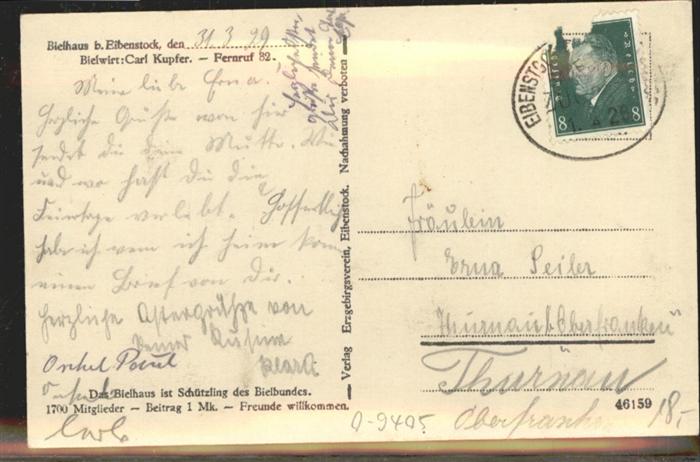 Bielhaus b. Eibenstock, den 31.3.29
Bielwirt: Carl Kupfer. – Fernruf 82.
Meine liebe Erna.
Herzliche Grüße von hier
sendet dir deine Mutti. Wie
und wo hast du die
Feiertage verlebt. Hoffentlich
habe ich wenn ich heim komme
einen Brief von Dir.
Herzliche Ostergrüße von
Deiner Kusine
Klara
Onkel Paul
Das Bielhaus ist Schützling des Bielbundes.
1700 Mitglieder – Beitrag 1 Mk. – Freunde willkommen.
Verlag Erzgebirgsverein, Eibenstock. Nachahmung verboten
EIBENSTOCK
8 8
Fräulein
Erna Seiler
Thurnau b Oberfranken
Thurnau
Oberfranken
46159
18,-
0-9405